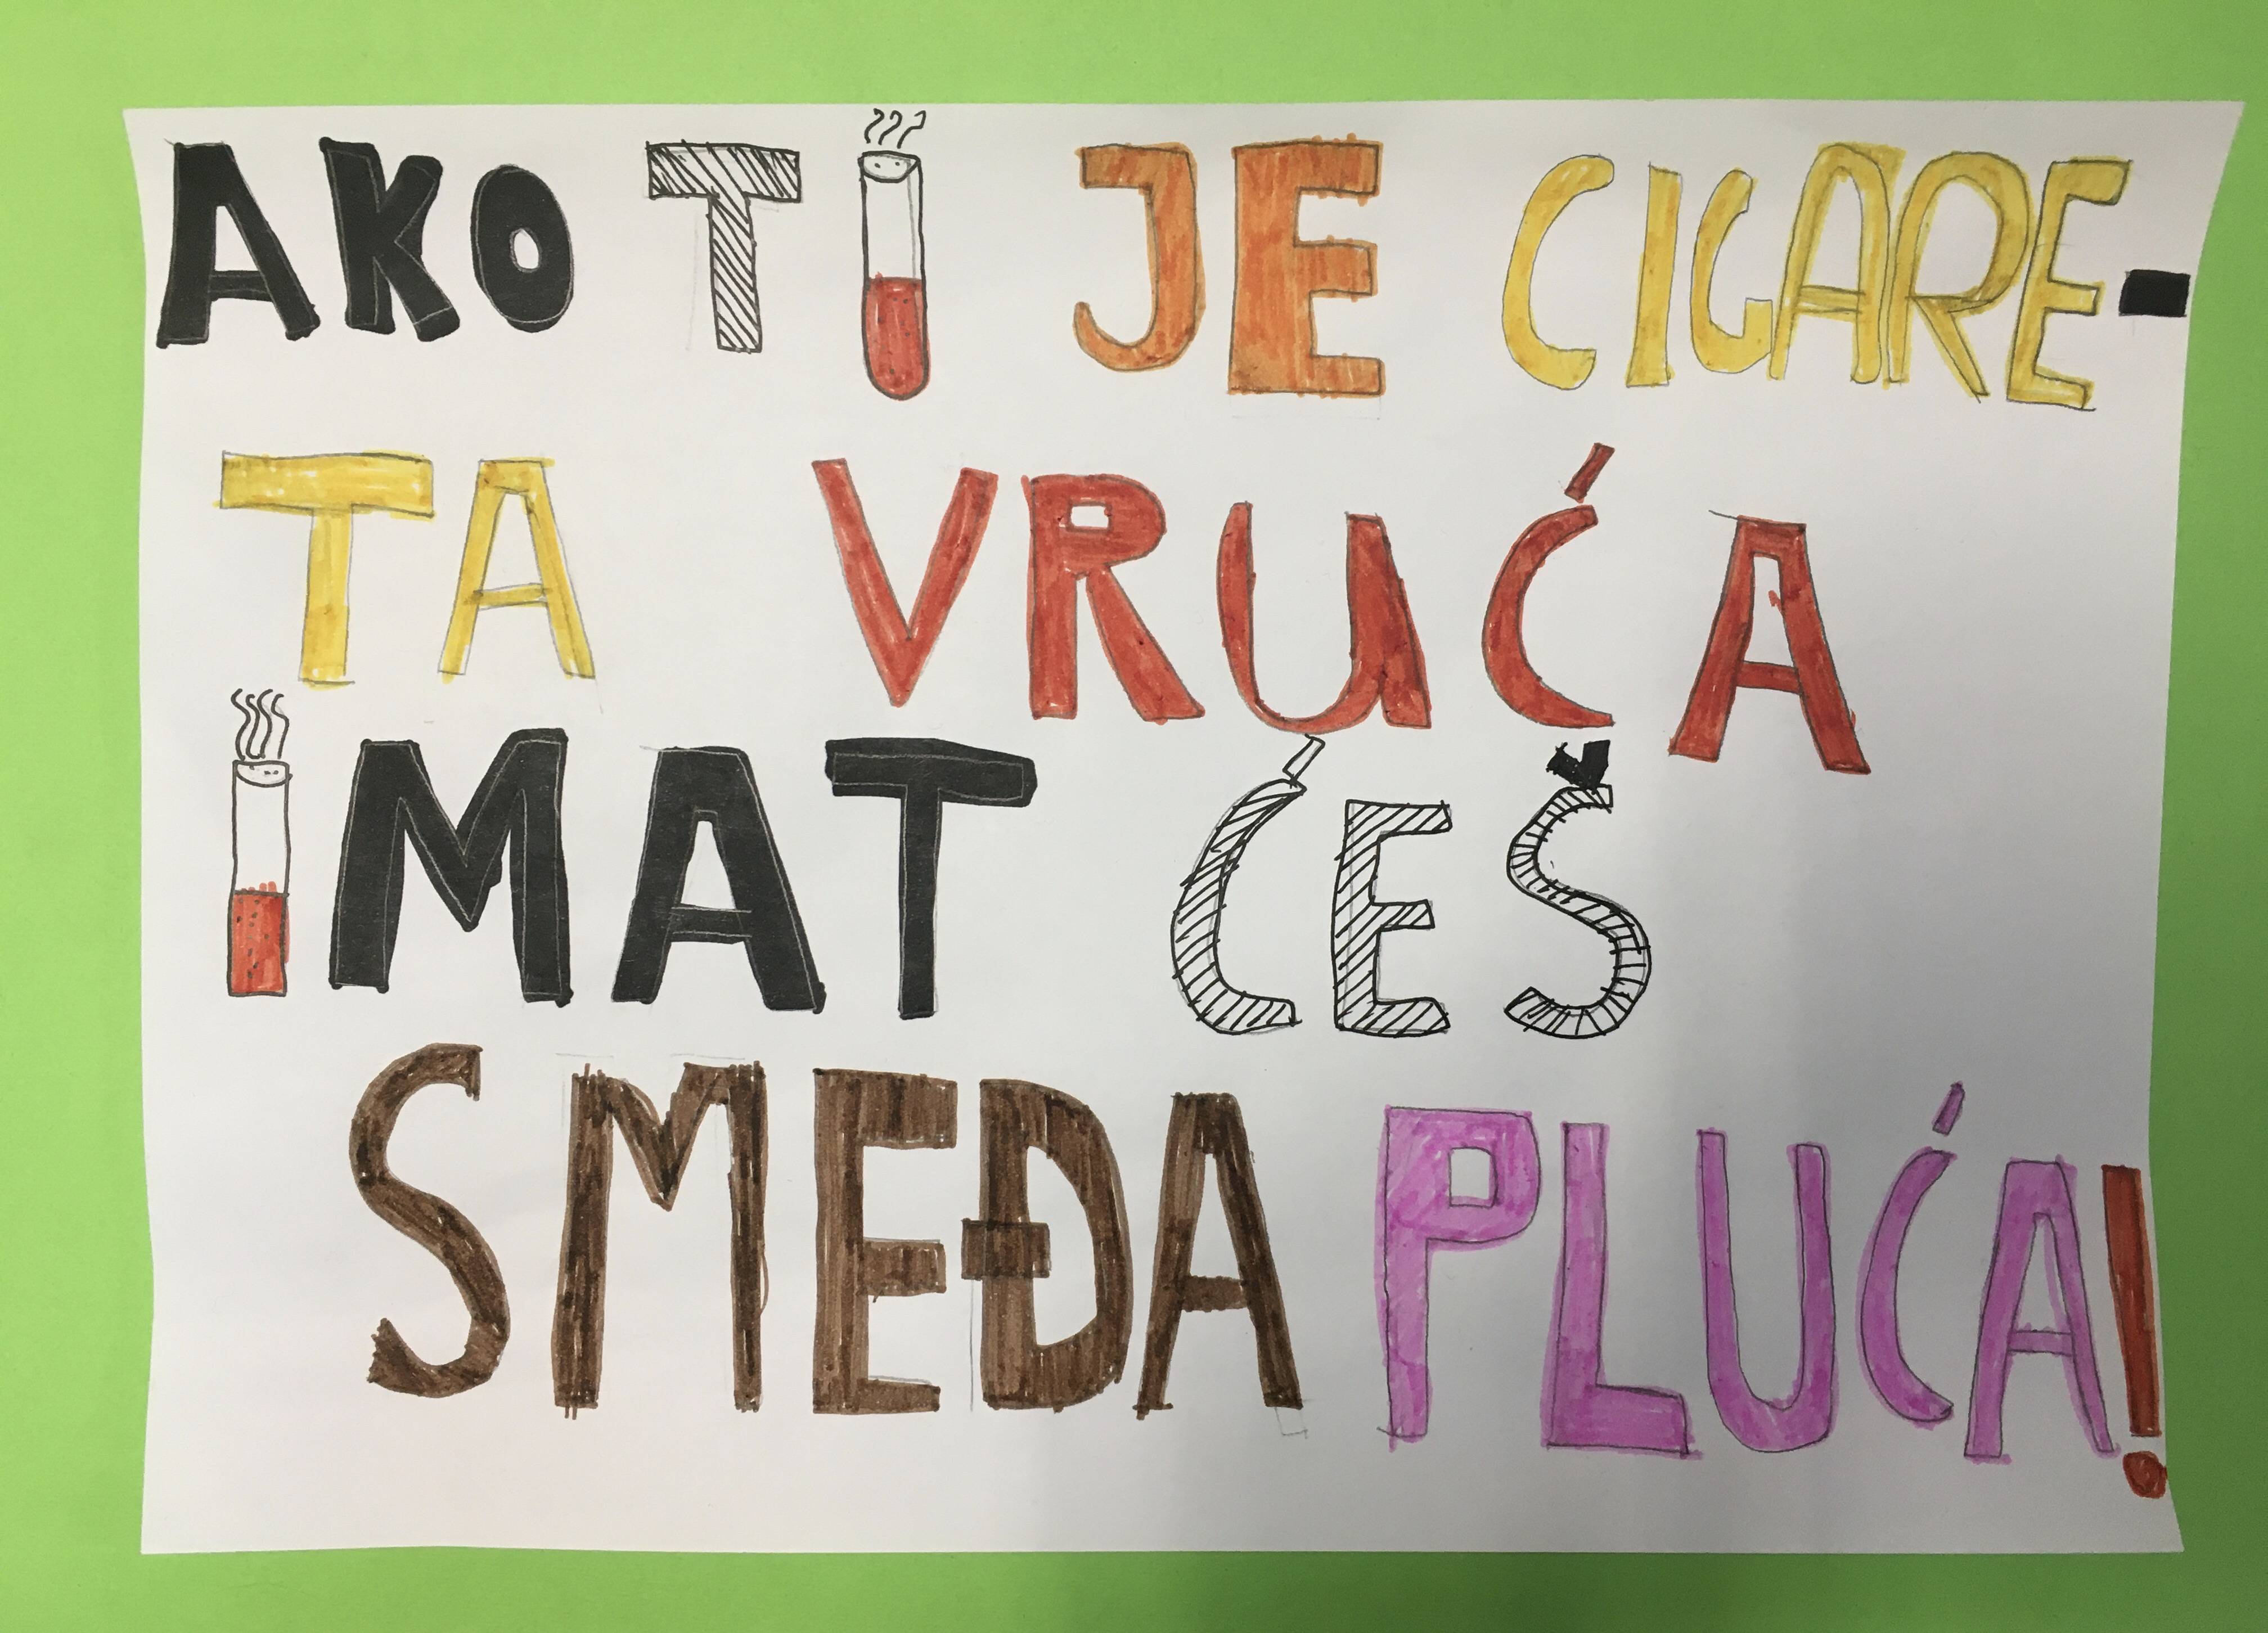 AKO TI JE CIGARE-
TA VRUĆA
IMAT ĆEŠ
SMEĐA PLUĆA!